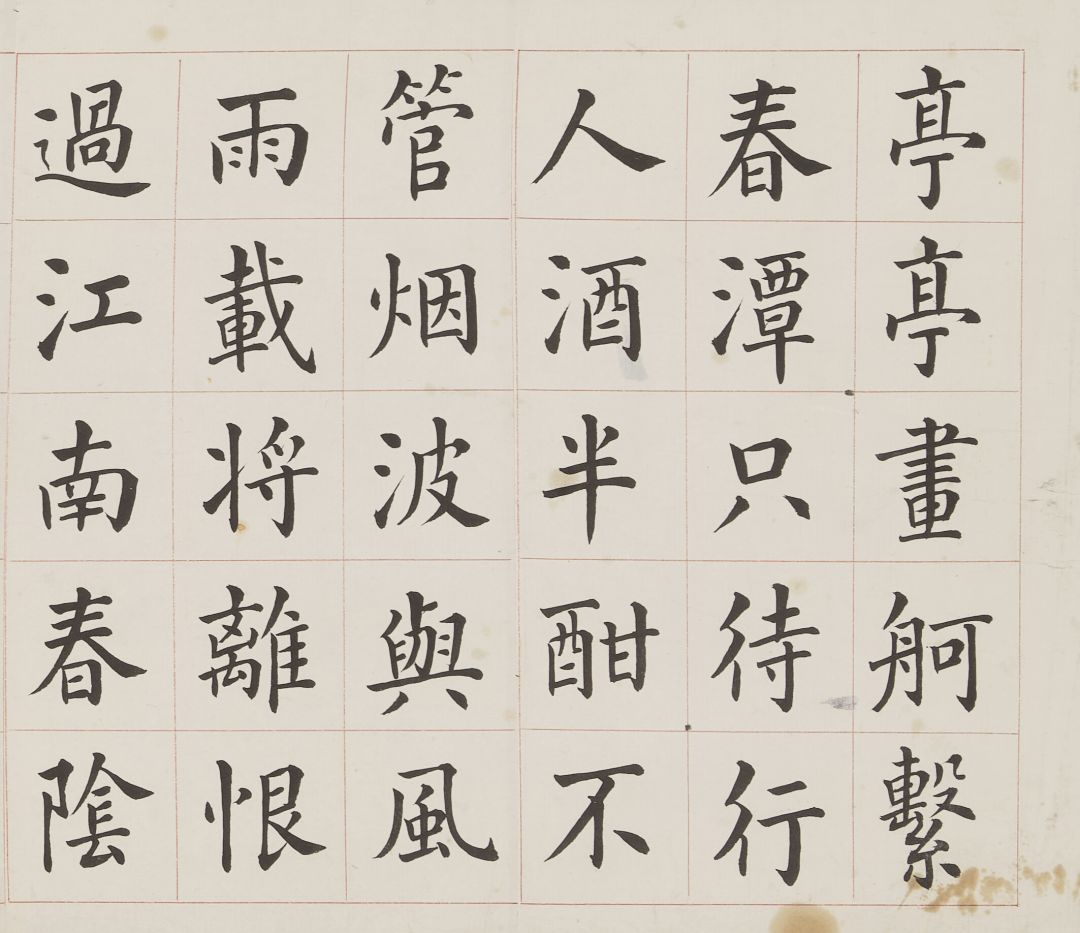 亭亭畫舸繫
春潭只待行
人酒半酣不
管烟波與風
雨載将離恨
過江南春陰